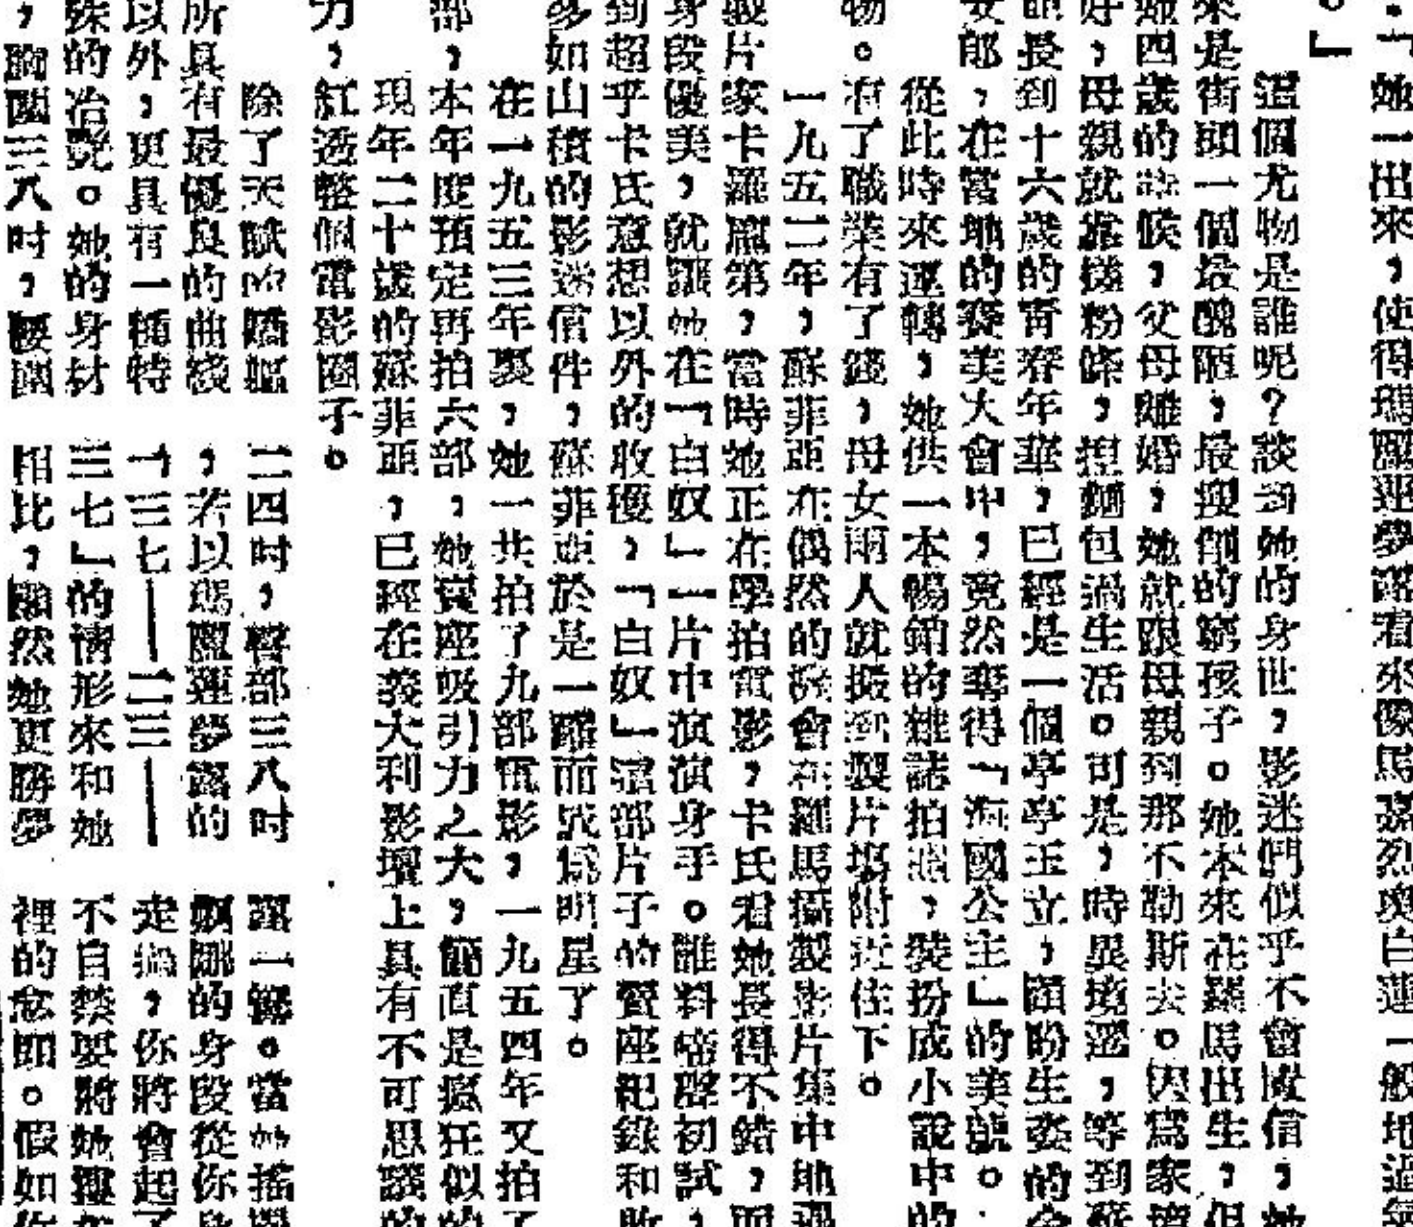 「她一出來，使得瑪麗蓮夢露看來像馬嘉烈奧白蓮一般地過
。」
這個尤物是誰呢？談到她的身世，影迷們似乎不會置信，她
來是街頭一個最醜陋，最瘦削的窮孩子。她本來在羅馬出生，但
她四歲的時候，父母離婚，她就跟母親到那不勒斯去。因爲家境
好，母親就靠搓粉條，捏麵包過生活。可是，時異境遷，等到蘇
長到十六歲的青春年華，已經是一個亭亭玉立，顧盼生姿的
女郎，在當地的賽美大會中，竟然奪得「海國公主」的美號。
從此時來運轉，她供一本暢銷的雜誌拍照，裝扮成小說中的
物。有了職業有了錢，母女兩人就搬到製片場附近住下。
一九五二年，蘇菲亞在偶然的機會在羅馬攝製影片集中地遇
製片家卡羅龐第，當時她正在學拍電影，卡氏看她長得不錯，而
身段優美，就讓她在「白奴」一片中演演身手。誰料啼聲初試，
到超乎卡氏意想以外的收穫，「白奴」這部片子的賣座紀錄和收
多如山積的影迷信件，蘇菲亞於是一躍而成爲明星了。
在一九五三年裏，她一共拍了九部電影，一九五四年又拍了
部，本年度預定再拍六部，她賣座吸引力之大，簡直是瘋狂似的
現年二十歲的蘇菲亞，已經在義大利影壇上具有不可思議的
力，紅透整個電影圈子。
除了天賦的嬌軀
所具有最優良的曲綫
以外，更具有一種特
殊的冶艷。她的身材
，胸圍三八吋，腰圍
二四吋，臀部三八吋
，若以瑪麗蓮夢露的
「三七——二三——
三七」的情形來和她
相比，顯然她更勝夢
露一籌。當她搖擺
婀娜的身段從你身
走過，你將會起了
不自禁要將她摟在
裡的念頭。假如你